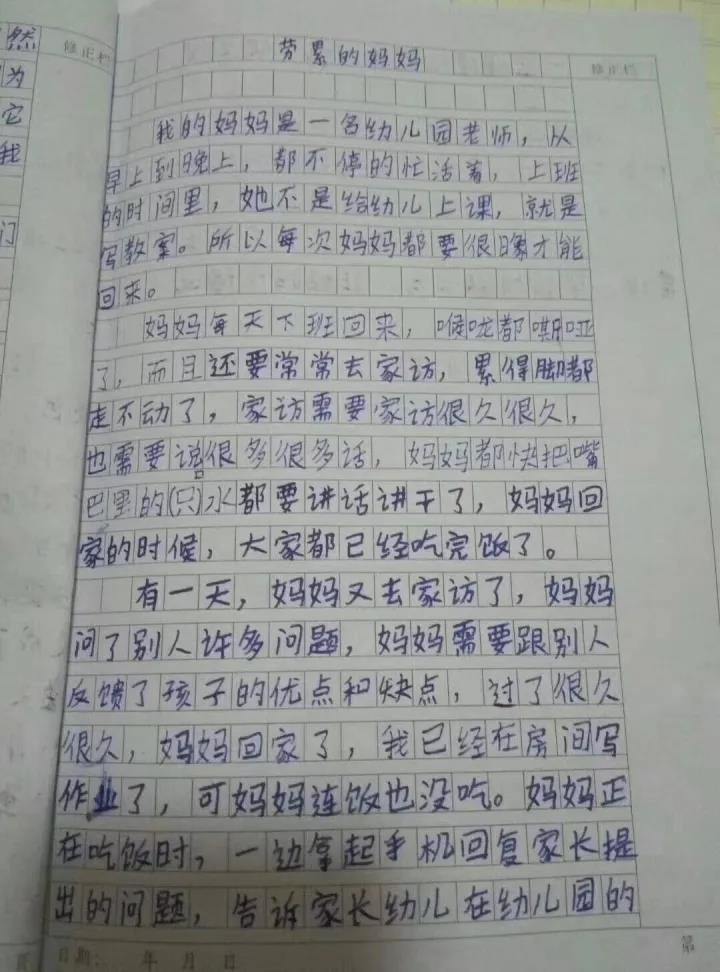 然
为
它
我
门
修正栏
劳累的妈妈
修正栏
我的妈妈是一名幼儿园老师，从
早上到晚上，都不停的忙活着，上班
的时间里，她不是给幼儿上课，就是
写教案。所以每次妈妈都要很晚才能
回来。
妈妈每天下班回来，喉咙都嘶哑
了，而且还要常常去家访，累得脚都
走不动了，家访需要家访很久很久，
也需要说很多很多话，妈妈都快把嘴
巴里的(口)水都要讲话讲干了，妈妈回
家的时候，大家都已经吃完饭了。
有一天，妈妈又去家访了，妈妈
问了别人许多问题，妈妈需要跟别人
反馈了孩子的优点和缺点，过了很久
很久，妈妈回家了，我已经在房间写
作业了，可妈妈连饭也没吃。妈妈正
在吃饭时，一边拿起手机回复家长提
出的问题，告诉家长幼儿在幼儿园的
页 日期： 年 月 日
第